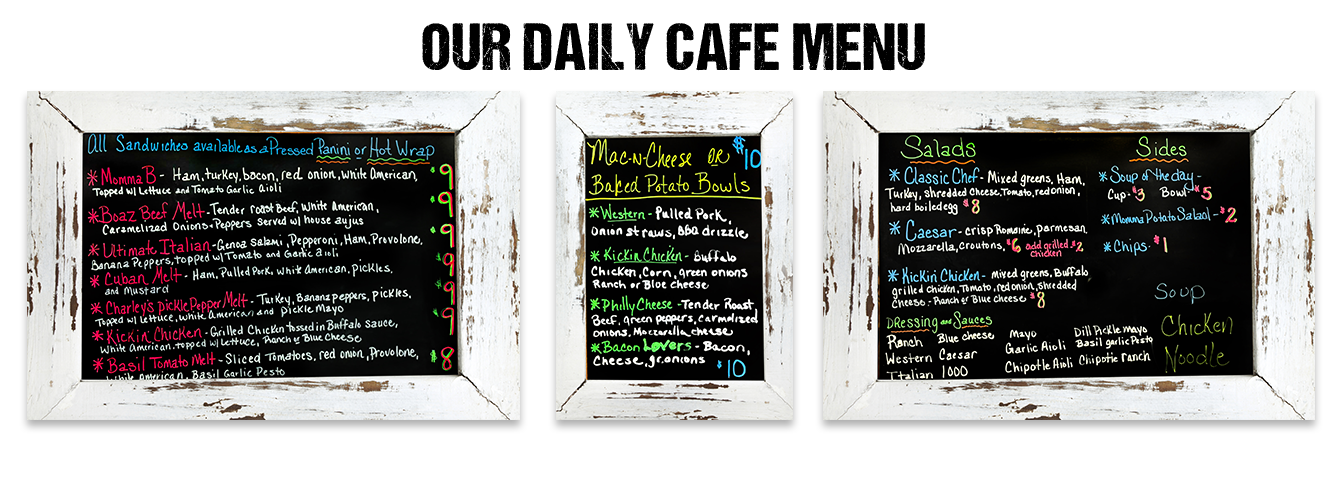 OUR DAILY CAFE MENU
All Sandwiches available as a Pressed Panini or Hot Wrap
* Momma B - Ham, turkey, bacon, red onion, white American, $9
Topped w/ Lettuce and Tomato Garlic aioli
* Boaz Beef Melt - Tender roast Beef, White American, $9
Caramelized Onions & Peppers served w/ house aujus
* Ultimate Italian - Genoa Salami, Pepperoni, Ham, Provolone, $9
Banana Peppers, topped w/ Tomato and Garlic aioli
* Cuban Melt - Ham, Pulled Pork, White American, pickles, $9
and Mustard
* Charley's pickle Pepper Melt - Turkey, Banana peppers, pickles, $9
Topped w/ Lettuce, white American and pickle Mayo
* Kickin' Chicken - Grilled Chicken tossed in Buffalo sauce, $9
White American, topped w/ Lettuce, Ranch or Blue Cheese
* Basil Tomato Melt - Sliced Tomatoes, red onion, Provolone, $8
White American, Basil Garlic Pesto
Mac-N-Cheese OR $10
Baked Potato Bowls
* Western - Pulled Pork,
onion straws, BBQ drizzle
* Kickin Chicken - Buffalo
Chicken, Corn, green onions
Ranch or Blue cheese
* Philly Cheese - Tender Roast
Beef, green peppers, carmalized
onions, Mozzarella cheese
* Bacon Lovers - Bacon,
Cheese, gr. onions
$10
Salads
* Classic Chef - Mixed greens, Ham,
Turkey, shredded Cheese, Tomato, red onion,
hard boiled egg $8
* Caesar - crisp Romaine, parmesan,
Mozzarella, croutons, $6 add grilled chicken $2
* Kickin' Chicken - mixed greens, Buffalo
grilled chicken, Tomato, red onion, shredded
cheese - Ranch or Blue cheese $8
Dressing and Sauces
Ranch Blue cheese Mayo Dill Pickle mayo
Western Caesar Garlic Aioli Basil garlic Pesto
Italian 1000 Chipotle Aioli Chipotle ranch
Sides
* Soup of the day -
Cup - $3 Bowl $5
* Momma Potato Salad - $2
* Chips - $1
Soup
Chicken
Noodle